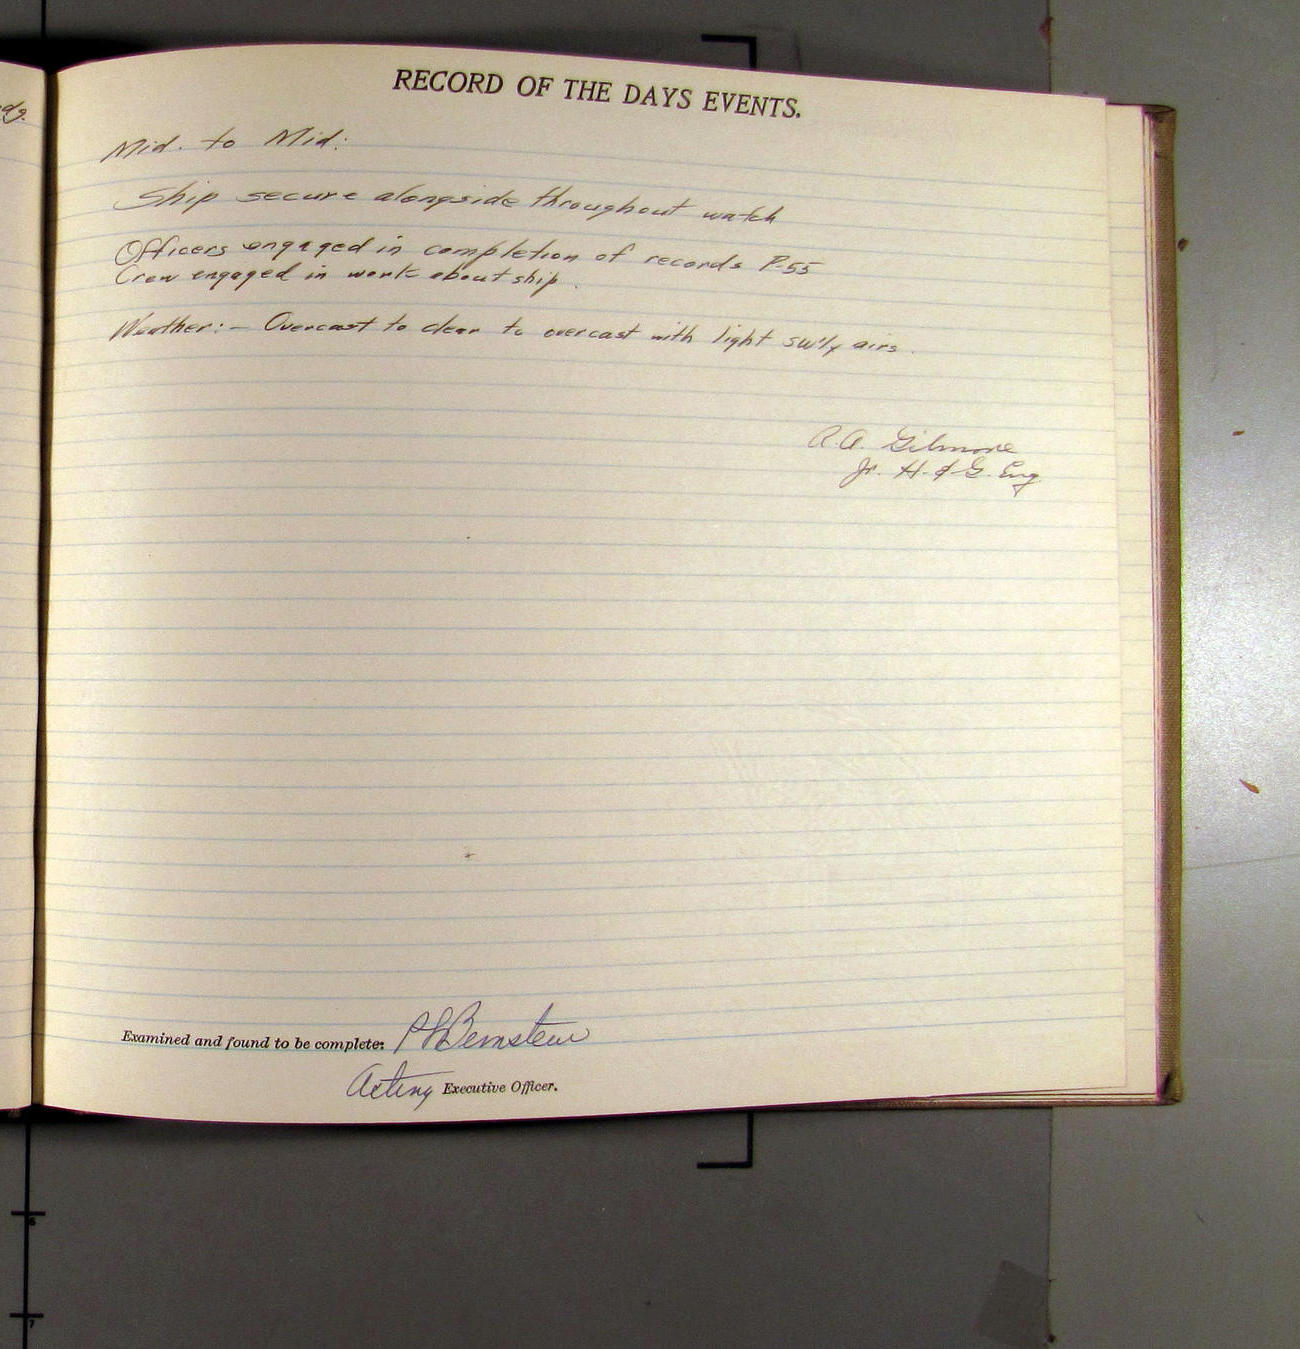 RECORD OF THE DAYS EVENTS.
Mid. to Mid:
Ship secure alongside throughout watch
Officers engaged in completion of records P-55
Crew engaged in work about ship.
Weather:- Overcast to clear to overcast with light sw'ly airs.
R.A. Gilmore
Jr. H. & G. Eng.
Examined and found to be complete: Bernstein
Acting Executive Officer.
6
7